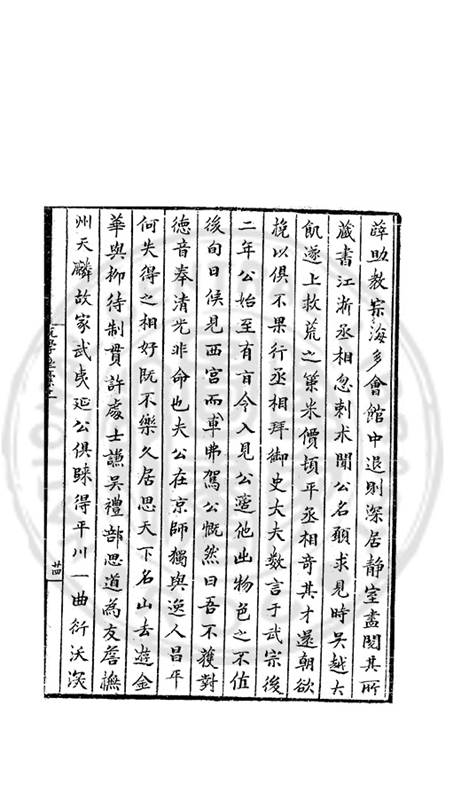 薛助教宗海多會館中退則深居靜室盡閱其所
藏書江浙丞相忽剌术聞公名願求見時吳越大
飢遂上救荒之策米價頓平丞相奇其才還朝欲
挽以俱不果行丞相拜御史大夫數言于武宗後
二年公始至有旨令入見公適他出物色之不值
後旬日候見西宮而車弗駕公慨然曰吾不獲對
德音奉清光非命也夫公在京師獨與逸人昌平
何失得之相好既不樂久居思天下名山去遊金
華與柳待制貫許處士謙吳禮部思道為友詹撫
州天麟故家武夷延公俱歸得平川一曲衍沃深
廿四